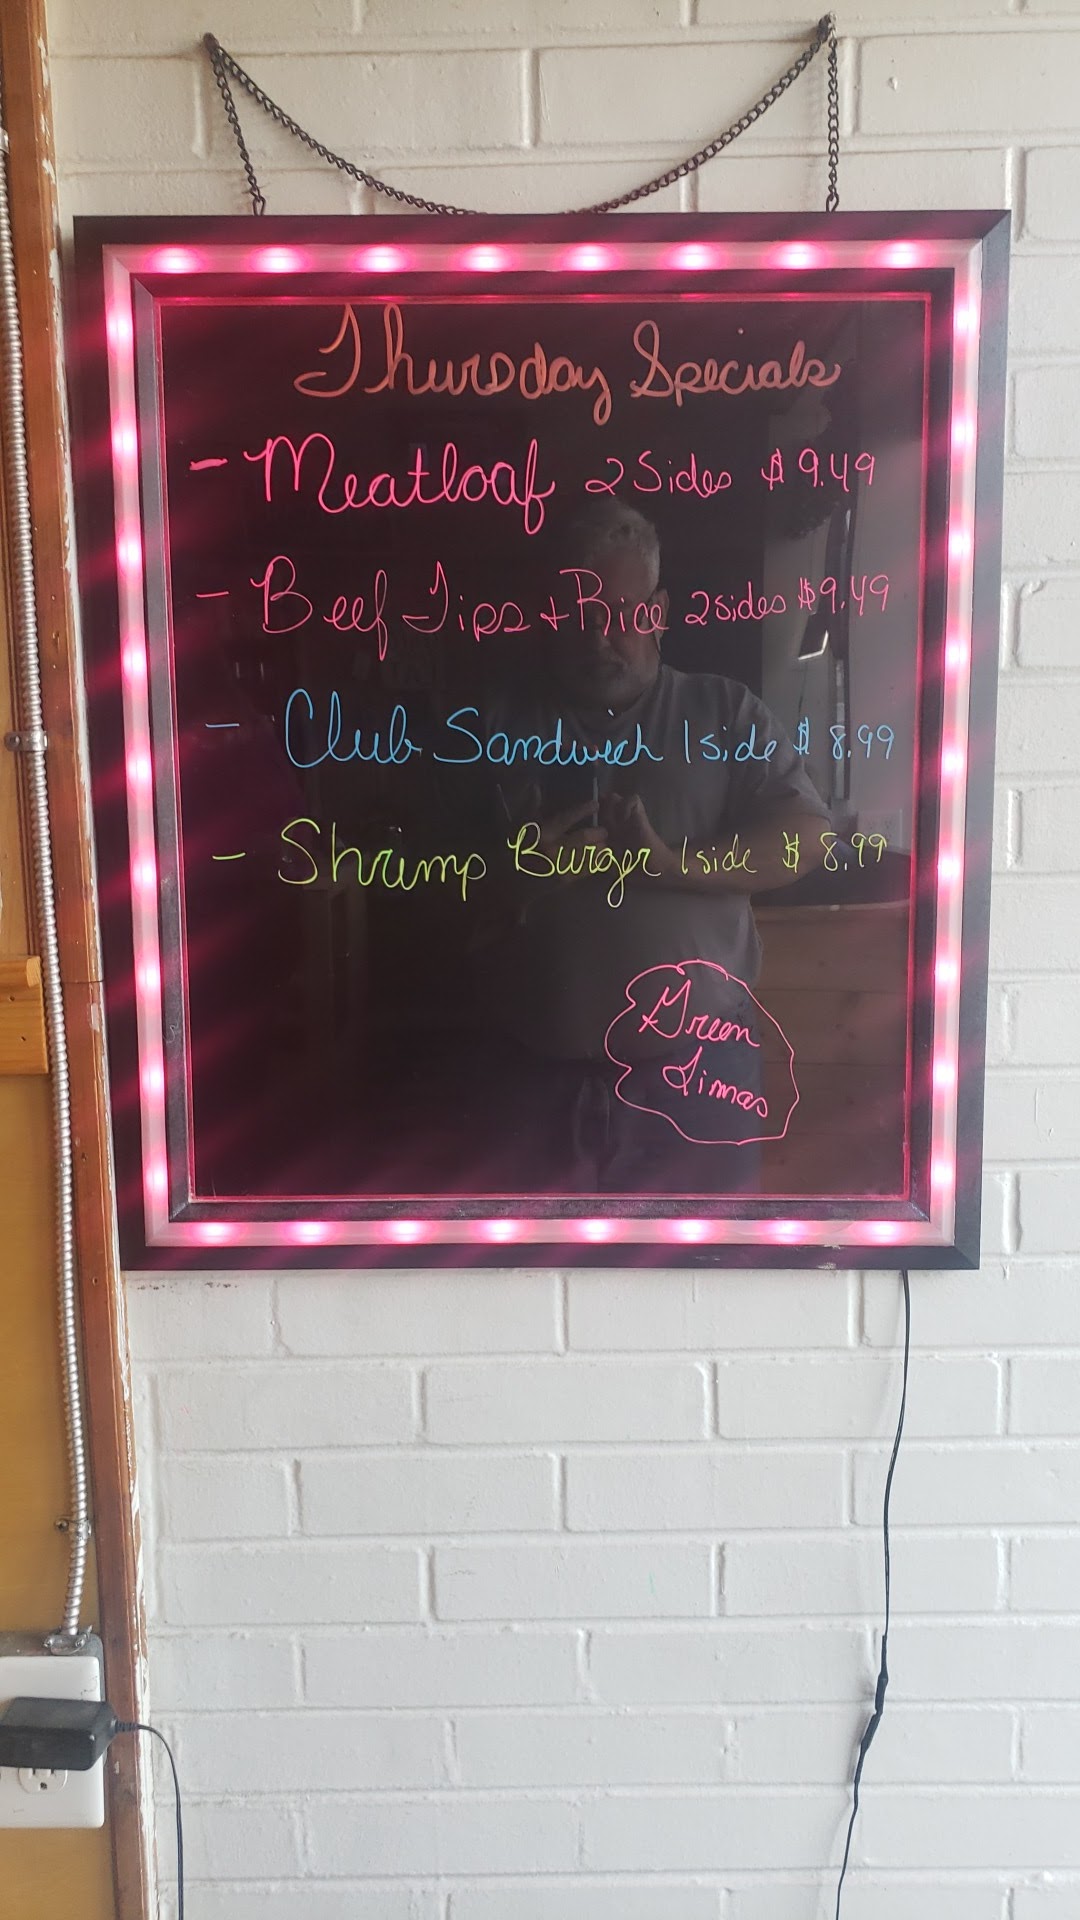 Thursday Specials
- Meatloaf 2 Sides $ 9.49
- Beef Tips + Rice 2 sides $9.49
- Club Sandwich 1 side $ 8.99
- Shrimp Burger 1 side $ 8.99
Green
Limas